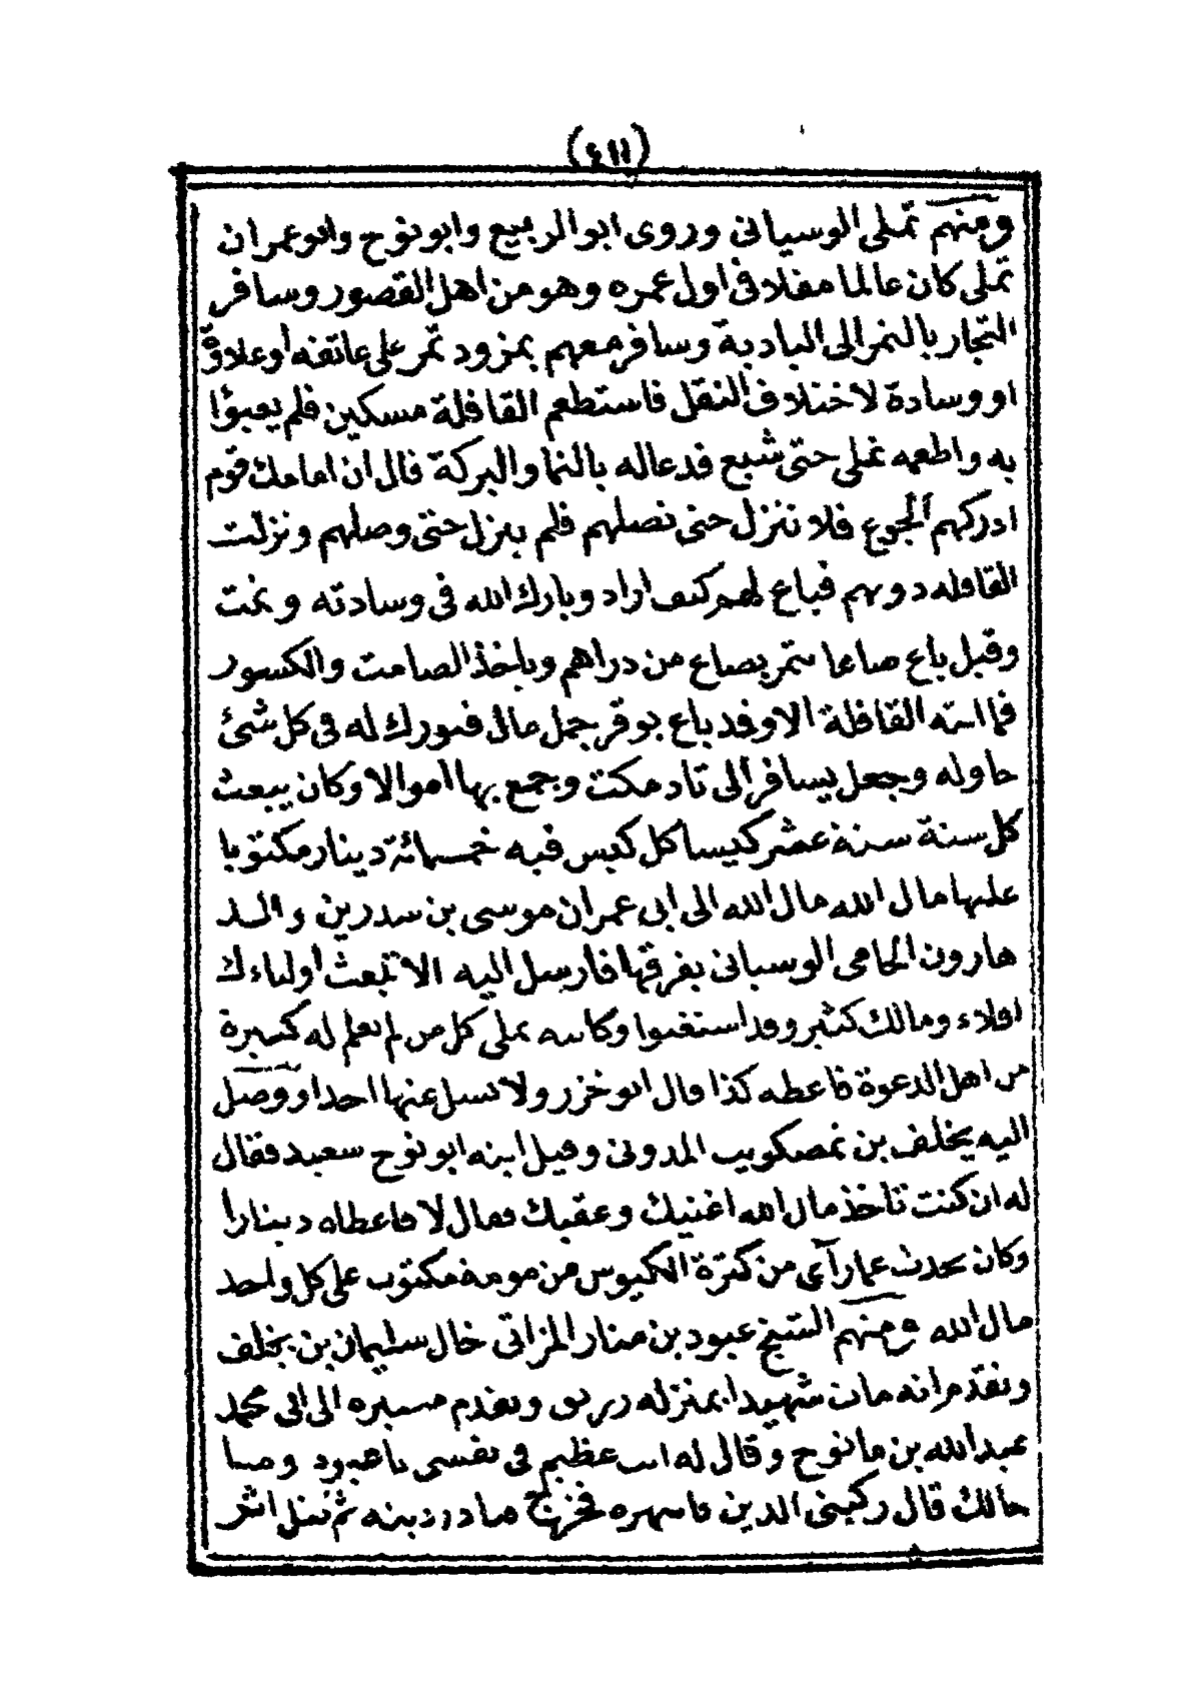 (٤١١)
ومنهم تملى الوسيانى وروى ابو الربيع وابو نوح وابو عمران
تملى كان عالما مقلا فى اول عمره وهو من اهل القصور وسافر
التجار بالتمر الى البادية وسافر معهم بمزود تمر على عاتقه او علاوة
او وسادة لاختلاف النقل فاستطعم القافلة مسكين فلم يعبؤا
به واطعمه تملى حتى شبع فدعا له بالنما والبركة فقال ان امامك قوم
ادركهم الجوع فلا تنزل حتى تصلهم فلم ينزل حتى وصلهم ونزلت
القافله دونهم فباع لهم كيف اراد وبارك الله فى وسادته ونمت
وقيل باع صاعا بتمر بصاع من دراهم وياخذ الصامت والكسور
فما اتته القافلة الا وقد باع بوقر جمل مال فبورك له فى كل شئ
حاوله وجعل يسافر الى تادمكت وجمع بها اموالا وكان يبعث
كل سنة ستة عشر كيسا كل كيس فيه خمسمائة دينار مكتوبا
عليها مال الله مال الله الى ابى عمران موسى بن سدرين والــد
هارون الحامى الوسيانى يفرقها فارسل اليه الا تبعث اولياءك
اقلاء ومالك كثير وقد استغنوا وكاتبه تملى كل من لم تعلم له كبيرة
من اهل الدعوة فاعطه كذا قال ابو خزر ولا تسل عنها احدا ووصل
اليه يخلف بن تمصكويت المدونى وقيل ابنه ابو نوح سعيد فقال
له ان كنت تاخذ مال الله اغنيك وعقبك فقال لا فاعطاه دينارا
وكان يحدث عما رآى من كثرة الكيوس من مومة مكتوب على كل واحد
مال الله ومنهم الشيخ عبود بن منار المزاتى خال سليمان بن يخلف
وتقدم انه مات شهيدا بمنزله وتقدم مسيره الى ابى محمد
عبد الله بن مانوح وقال له انت عظيم فى نفسى يا عبود وما
حالك قال ركبنى الدين فاسهره فخرج دينه ثم تمثل اثر